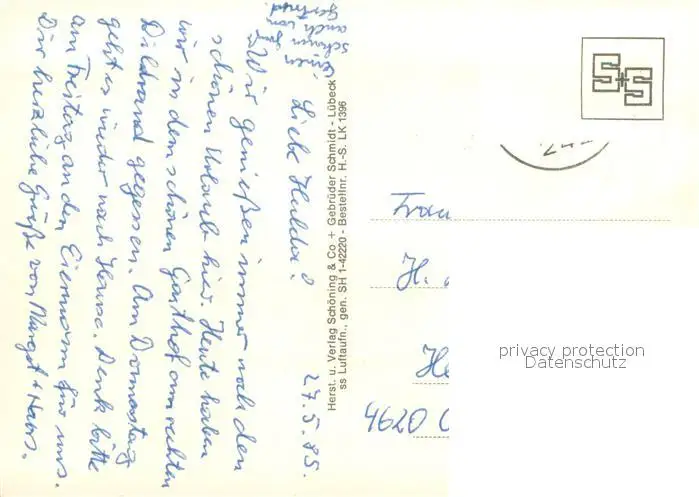 27.5.85.
Liebe Hulda!
Wir genießen immer noch den
schönen Urlaub hier. Heute haben
wir in dem schönen Gasthof am rechten
Bildrand gegessen. Am Donnerstag
geht es wieder nach Hause. Denk bitte
am Freitag an den Eiermann für uns.
Dir herzliche Grüße von Margot + Hans.
auch von
Gertrud.
Herst. u. Verlag Schöning & Co + Gebrüder Schmidt - Lübeck
ss Luftaufn., gen. SH 1-42220 - Bestellnr. H.-S. LK 1396
S+S
Frau
H.
He
4620 C
privacy protection
Datenschutz